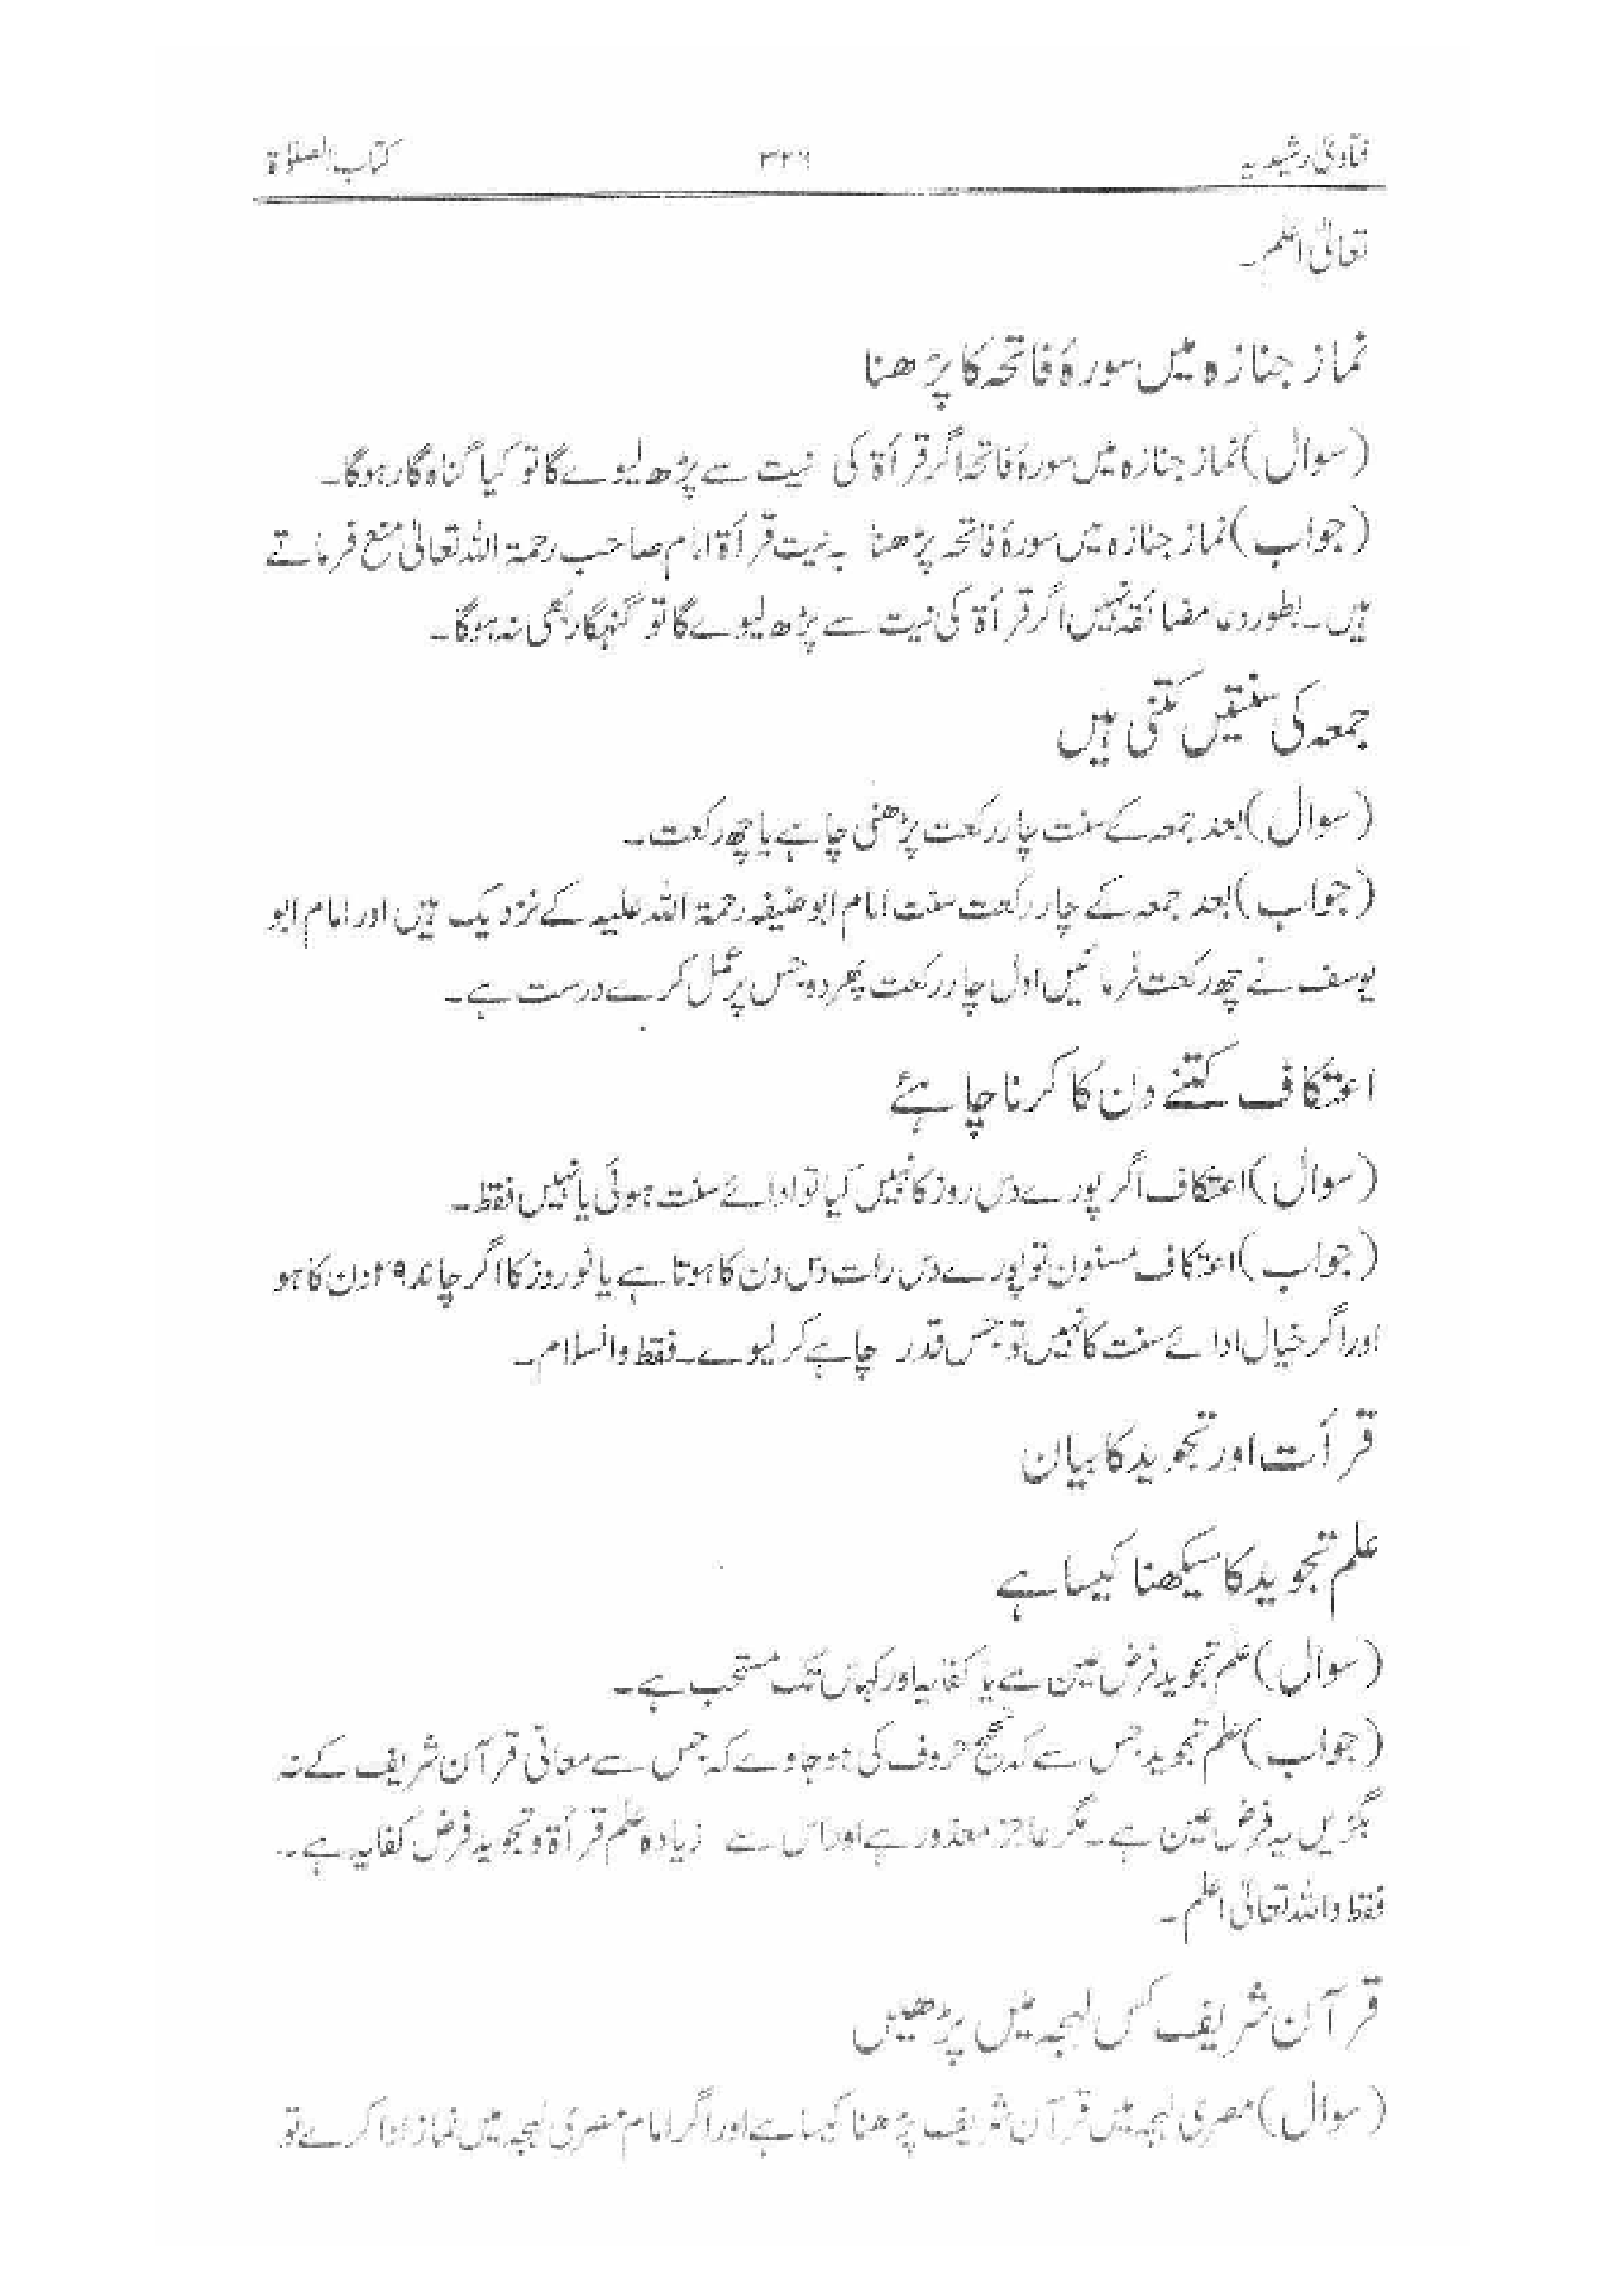 فتاویٰ رشیدیہ ۳۲۶ کتاب الصلوٰۃ
تعالیٰ اعلم۔
نماز جنازہ میں سورۂ فاتحہ کا پڑھنا
(سوال) نماز جنازہ میں سورۂ فاتحہ اگر قرأۃ کی نیت سے پڑھ لیوے گا تو کیا گناہ گار ہوگا۔
(جواب) نماز جنازہ میں سورۂ فاتحہ پڑھنا بہ نیت قرأۃ امام صاحب رحمۃ اللہ تعالیٰ منع فرماتے
ہیں۔ بطور دعا مضائقہ نہیں اگر قرأۃ کی نیت سے پڑھ لیوے گا تو گنہگار بھی نہ ہوگا۔
جمعہ کی سنتیں کتنی ہیں
(سوال) بعد جمعہ کے سنت چار رکعت پڑھنی چاہئے یا چھ رکعت۔
(جواب) بعد جمعہ کے چار رکعت سنت امام ابوحنیفہ رحمۃ اللہ علیہ کے نزدیک ہیں اور امام ابو
یوسف نے چھ رکعت فرمائیں اول چار رکعت پھر دو جس پر عمل کرے درست ہے۔
اعتکاف کتنے دن کا کرنا چاہئے
(سوال) اعتکاف اگر پورے دس روز کا نہیں کیا تو ادائے سنت ہوئی یا نہیں فقط۔
(جواب) اعتکاف مسنون تو پورے دس رات دس دن کا ہوتا ہے یا نو روز کا اگر چاند ۲۹ دن کا ہو
اور اگر خیال ادائے سنت کا نہیں تو جس قدر چاہے کر لیوے۔ فقط والسلام۔
قرأت اور تجوید کا بیان
علم تجوید کا سیکھنا کیسا ہے
(سوال) علم تجوید فرض عین ہے یا کفایہ اور کہاں تک مستحب ہے۔
(جواب) علم تجوید جس سے کہ تصحیح حروف کی ہو جاوے کہ جس سے معانی قرآن شریف کے نہ
بگڑیں یہ فرض عین ہے۔ مگر عاجز معذور ہے اور اس سے زیادہ علم قرأۃ و تجوید فرض کفایہ ہے۔
فقط واللہ تعالیٰ اعلم۔
قرآن شریف کس لہجہ میں پڑھیں
(سوال) مصری لہجہ میں قرآن شریف پڑھنا کیسا ہے اور اگر امام مصری لہجہ میں نماز ادا کرے تو